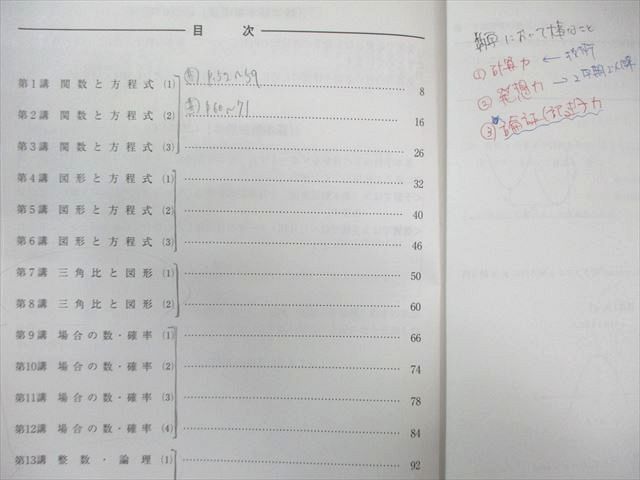 目 次
第1講 関数と方程式 (1) 8
P.52～59
第2講 関数と方程式 (2) 16
P.60～71
第3講 関数と方程式 (3) 26
第4講 図形と方程式 (1) 32
第5講 図形と方程式 (2) 40
第6講 図形と方程式 (3) 46
第7講 三角比と図形 (1) 50
第8講 三角比と図形 (2) 60
第9講 場合の数・確率 (1) 66
第10講 場合の数・確率 (2) 74
第11講 場合の数・確率 (3) 78
第12講 場合の数・確率 (4) 84
第13講 整数・論理 (1) 92
において大事なこと
① 計算力 ←
② 発想力 → 2学期以降
③ 論証(記述)力